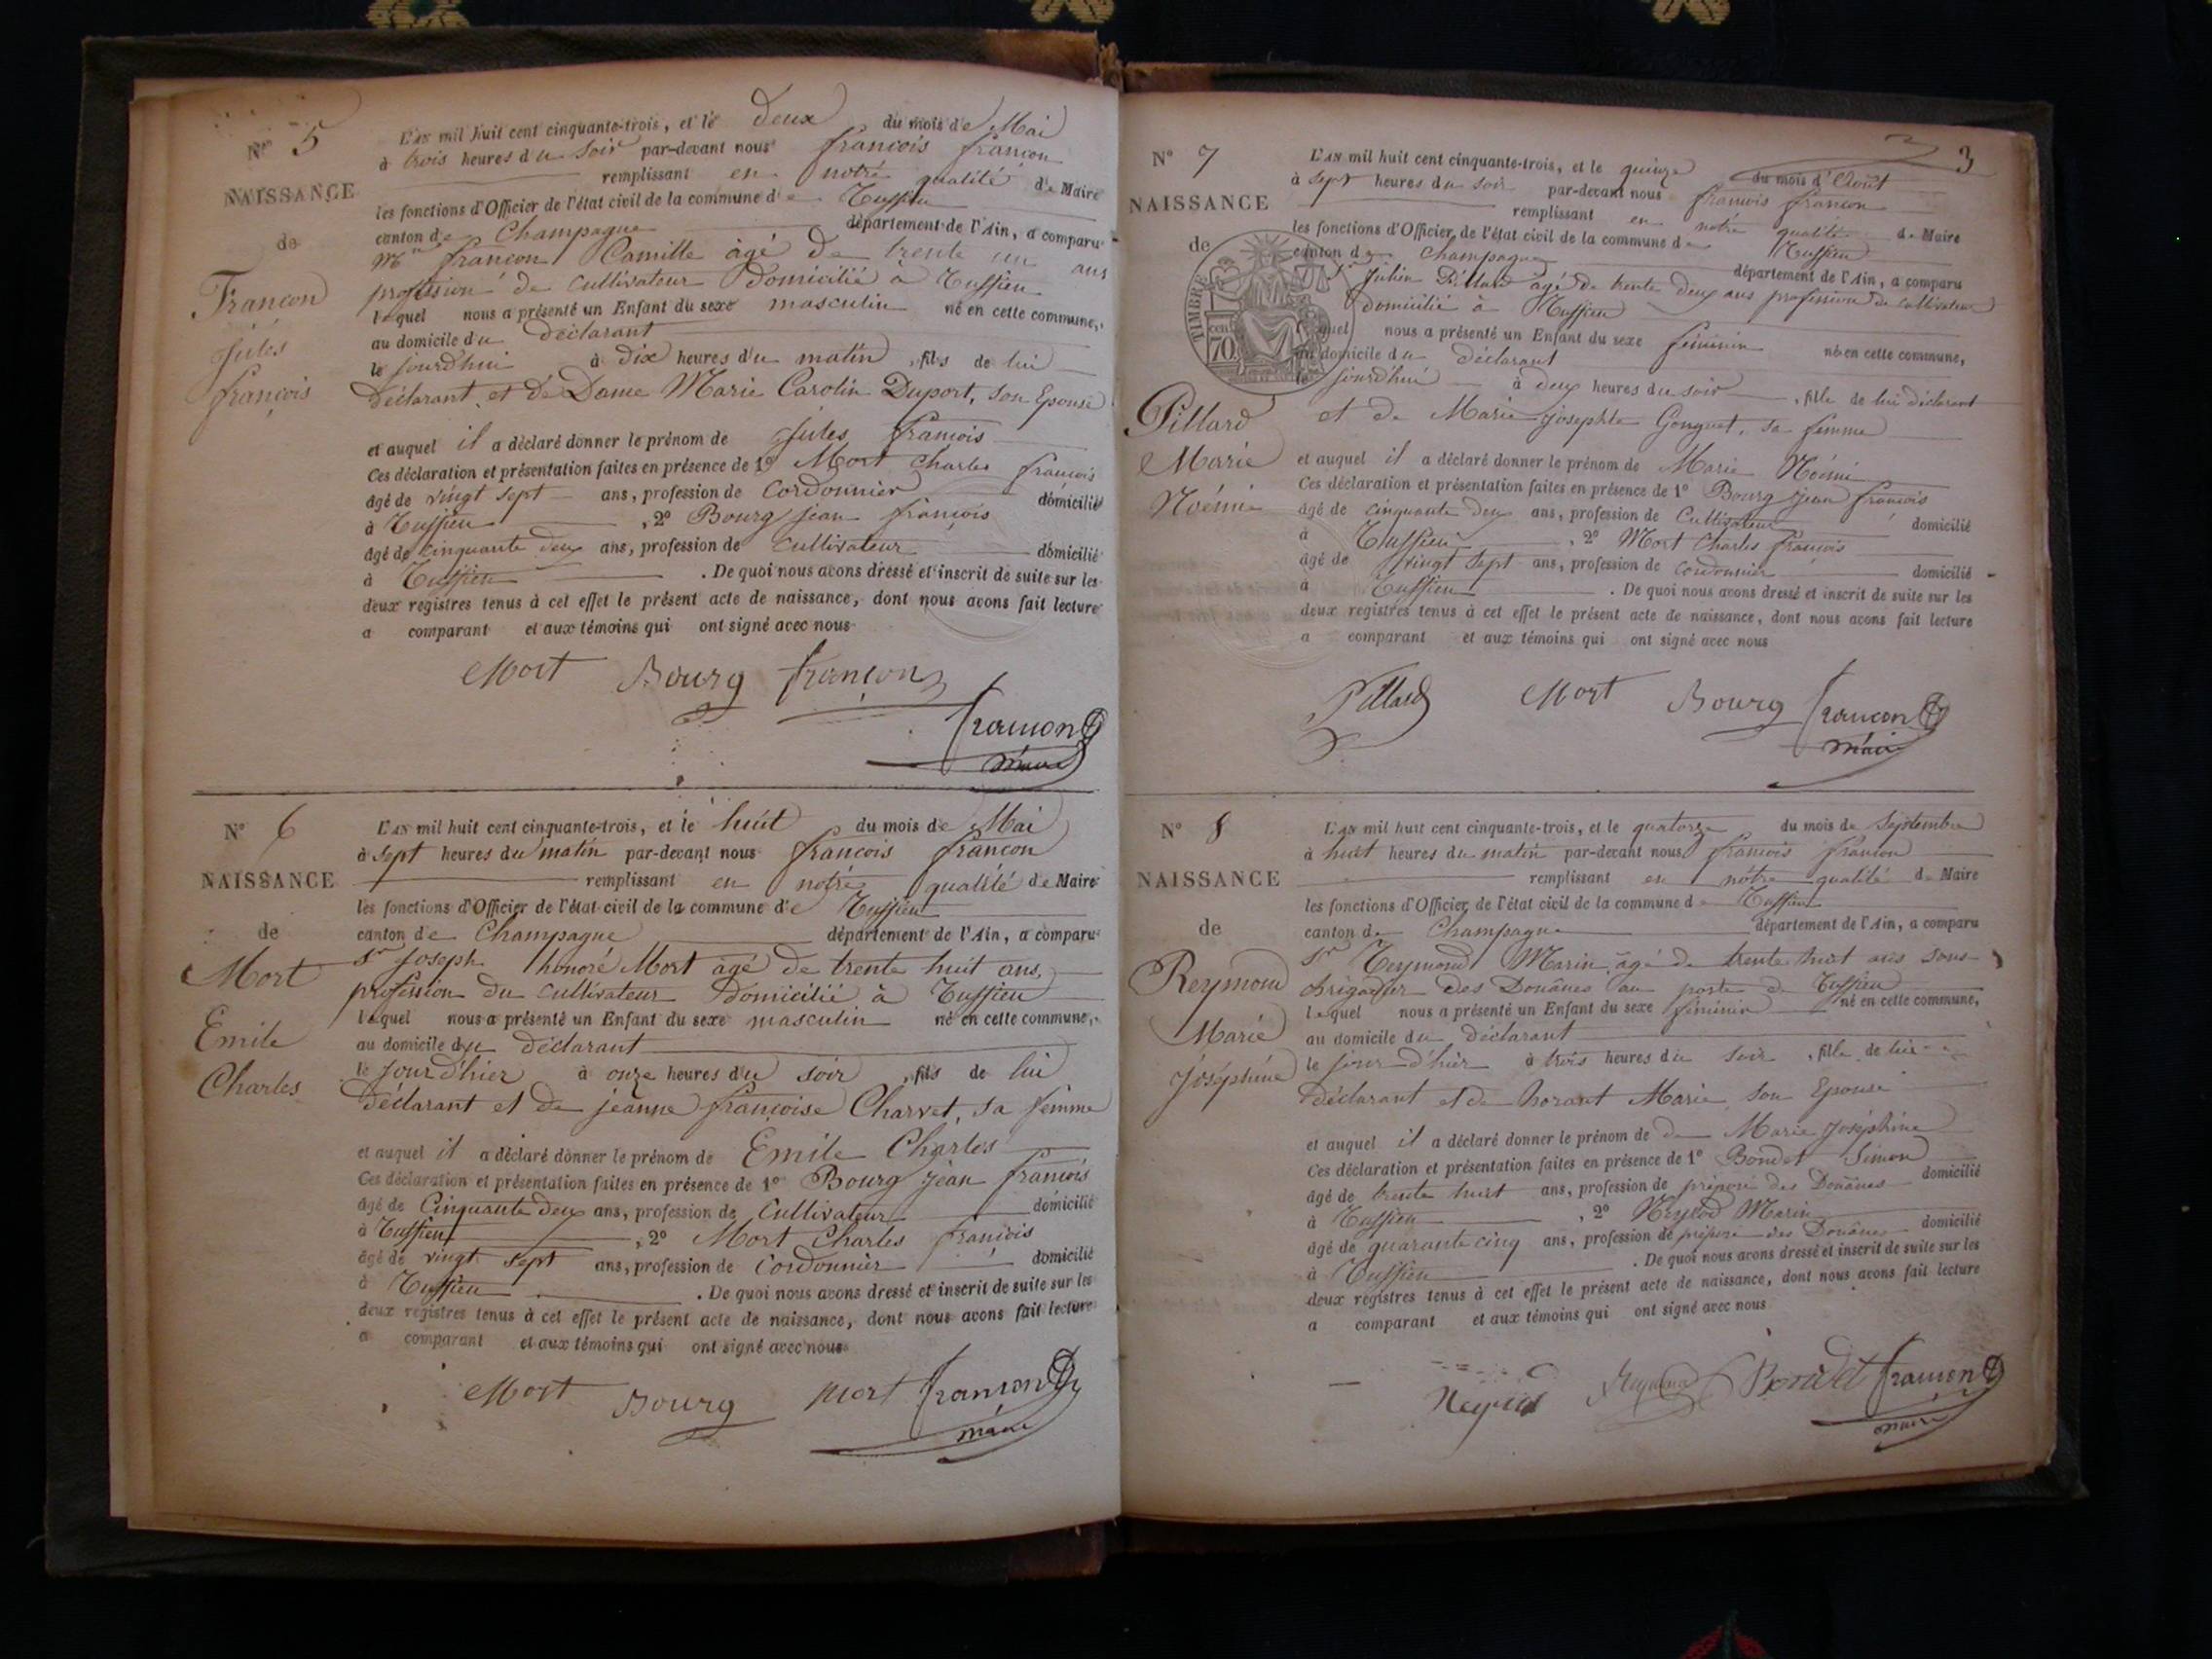 N° 5
NAISSANCE
de
Francon
Jules
françois
L'AN mil huit cent cinquante-trois, et le deux du mois de Mai
à trois heures du soir par-devant nous françois francon
remplissant en notre qualité de Maire
les fonctions d'Officier de l'état civil de la commune de
canton de Champagne département de l'Ain, a comparu
francon Camille âgé de trente un ans
profession de cultivateur domicilié à
lequel nous a présenté un Enfant du sexe masculin né en cette commune,
au domicile du déclarant
le jourd'hui à dix heures du matin, fils de lui
déclarant et de Dame Marie Carolin Duport, son Epouse
et auquel il a déclaré donner le prénom de Jules françois
Ces déclaration et présentation faites en présence de 1° Mort Charles françois
âgé de vingt sept ans, profession de Cordonnier domicilié
à , 2° Bourg jean françois
âgé de cinquante deux ans, profession de cultivateur domicilié
à . De quoi nous avons dressé et inscrit de suite sur les
deux registres tenus à cet effet le présent acte de naissance, dont nous avons fait lecture
a comparant et aux témoins qui ont signé avec nous
Mort Bourg françon
francon
maire
N° 6
NAISSANCE
de
Mort
Emile
Charles
L'AN mil huit cent cinquante-trois, et le huit du mois de Mai
à sept heures du matin par-devant nous françois francon
remplissant en notre qualité de Maire
les fonctions d'Officier de l'état civil de la commune de
canton de Champagne département de l'Ain, a comparu
Sr Joseph honoré Mort âgé de trente huit ans,
profession du cultivateur domicilié à
lequel nous a présenté un Enfant du sexe masculin né en cette commune,
au domicile du déclarant
le jour d'hier à onze heures du soir, fils de lui
déclarant et de jeanne françoise Charvet, sa femme
et auquel il a déclaré donner le prénom de Emile Charles
Ces déclaration et présentation faites en présence de 1° Bourg jean françois
âgé de Cinquante deux ans, profession de Cultivateur domicilié
à , 2° Mort Charles françois
âgé de vingt sept ans, profession de Cordonnier domicilié
à . De quoi nous avons dressé et inscrit de suite sur les
deux registres tenus à cet effet le présent acte de naissance, dont nous avons fait lecture
a comparant et aux témoins qui ont signé avec nous
Mort Bourg mort francon
maire
3
N° 7
NAISSANCE
de
TIMBRE
cen
70
Pillard
Marie
Noémie
L'AN mil huit cent cinquante-trois, et le quinze du mois d'Août
à sept heures du soir par-devant nous françois francon
remplissant en notre qualité de Maire
les fonctions d'Officier de l'état civil de la commune de
canton de Champagne département de l'Ain, a comparu
Sr Julien Pillard âgé de trente deux ans profession de cultivateur
domicilié à
lequel nous a présenté un Enfant du sexe féminin né en cette commune,
au domicile du déclarant
le jourd'hui à deux heures du soir, fille de lui déclarant
et de Marie Josephte Gonguet, sa femme
et auquel il a déclaré donner le prénom de Marie Noémie
Ces déclaration et présentation faites en présence de 1° Bourg jean françois
âgé de cinquante deux ans, profession de Cultivateur domicilié
à , 2° Mort Charles françois
âgé de vingt sept ans, profession de cordonnier domicilié
à . De quoi nous avons dressé et inscrit de suite sur les
deux registres tenus à cet effet le présent acte de naissance, dont nous avons fait lecture
a comparant et aux témoins qui ont signé avec nous
Pillard Mort Bourg francon
maire
N° 8
NAISSANCE
de
Reymond
Marie
Joséphine
L'AN mil huit cent cinquante-trois, et le quatorze du mois de Septembre
à huit heures du matin par-devant nous françois francon
remplissant en nôtre qualité de Maire
les fonctions d'Officier de l'état civil de la commune de
canton de Champagne département de l'Ain, a comparu
Sr Reymond Marin âgé de trente huit ans sous
brigadier des Douânes au poste de
lequel nous a présenté un Enfant du sexe féminin né en cette commune,
au domicile du déclarant
le jour d'hier à trois heures du soir, fille de lui
déclarant et de Marie son Epouse
et auquel il a déclaré donner le prénom de de Marie Joséphine
Ces déclaration et présentation faites en présence de 1° Bondet Simon
âgé de trente huit ans, profession de préposé des Douânes domicilié
à , 2° Marin
âgé de quarante cinq ans, profession de préposé des Douânes domicilié
à . De quoi nous avons dressé et inscrit de suite sur les
deux registres tenus à cet effet le présent acte de naissance, dont nous avons fait lecture
a comparant et aux témoins qui ont signé avec nous
Bondet francon
maire